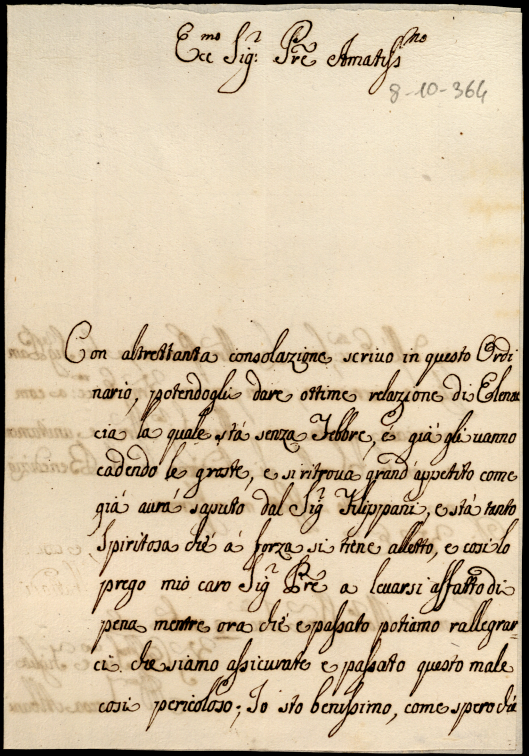 Ecc.mo Sig.r Pre Amatiss.mo
8-10-364
Con altrettanta consolazione scrivo in questo Ordi
nario, potendogli dare ottime relazione di Elenuc
cia la quale stà senza Febbre, è già gli vanno
cadendo le groste, e si ritrova grand'appetito come
già aurà saputo dal Sig.r Filippani, e stà tanto
spiritosa che à forza si tiene alletto, e così lo
prego mio caro Sig.r Pre a levarsi affatto di
pena mentre ora che è passato potiamo rallegrar
ci che siamo assicurate e passato questo male
così pericoloso; Io stò benissimo, come spero che